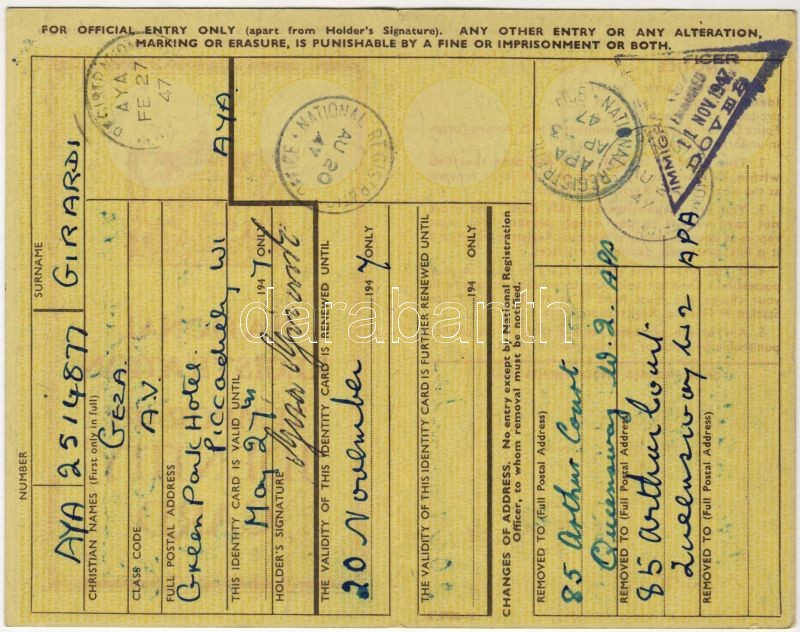 FOR OFFICIAL ENTRY ONLY (apart from Holder's Signature). ANY OTHER ENTRY OR ANY ALTERATION,
MARKING OR ERASURE, IS PUNISHABLE BY A FINE OR IMPRISONMENT OR BOTH.
NUMBER
SURNAME
AYA 25/4877 GIRARDI
CHRISTIAN NAMES (First only in full)
GEZA.
CLASS CODE
A.V.
FULL POSTAL ADDRESS
Green Park Hotel
Piccadilly, W1
AYA
THIS IDENTITY CARD IS VALID UNTIL
May 27th 1947 ONLY
HOLDER'S SIGNATURE
THE VALIDITY OF THIS IDENTITY CARD IS RENEWED UNTIL
20 November 1947 ONLY
THE VALIDITY OF THIS IDENTITY CARD IS FURTHER RENEWED UNTIL
194 ONLY
CHANGES OF ADDRESS. No entry except by National Registration
Officer, to whom removal must be notified.
REMOVED TO (Full Postal Address)
85 Arthur Court
Queensway W.2. APA
REMOVED TO (Full Postal Address)
85 Arthur Court
Queensway W2 APA
REMOVED TO (Full Postal Address)
AYA
FE 27
47
NATIONAL REGISTRATION OFFICE
AU 20
47
NATIONAL REGISTRATION
APA
AP 23
47
IMMIGRATION OFFICER
11 NOV 1947
DOVER
darabanth